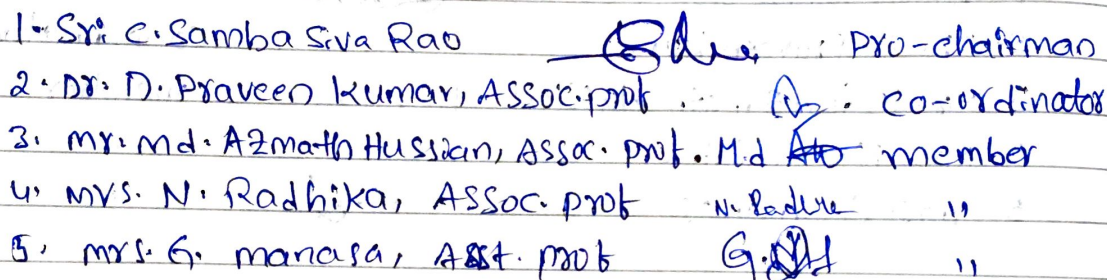 1. Sri C. Samba Siva Rao : pro-chairman
2. Dr. D. Praveen Kumar, Assoc. prof . : co-ordinator
3. mr. md. Azmath Hussian, Assoc. prof. M.d member
4. mrs. N. Radhika, Assoc. prof N. "
5. mrs. G. manasa, Asst. prof G. "